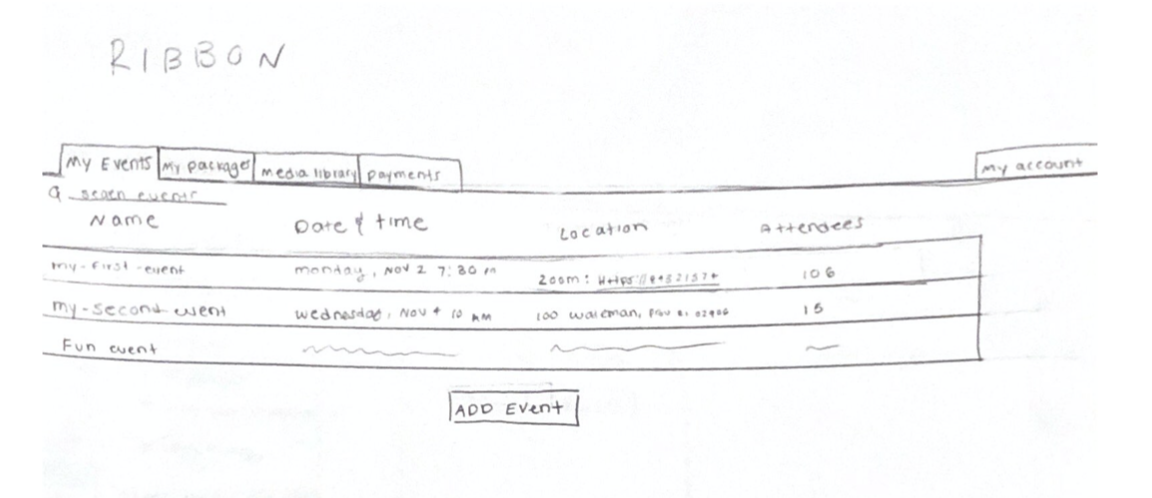 RIBBON
My Events My packages media library payments My account
Name Date & time Location Attendees
my-first-event monday, NOV 2 7:30 Zoom: 106
my-second-event wednesday, NOV 4 10 AM 100 15
Fun event
ADD Event